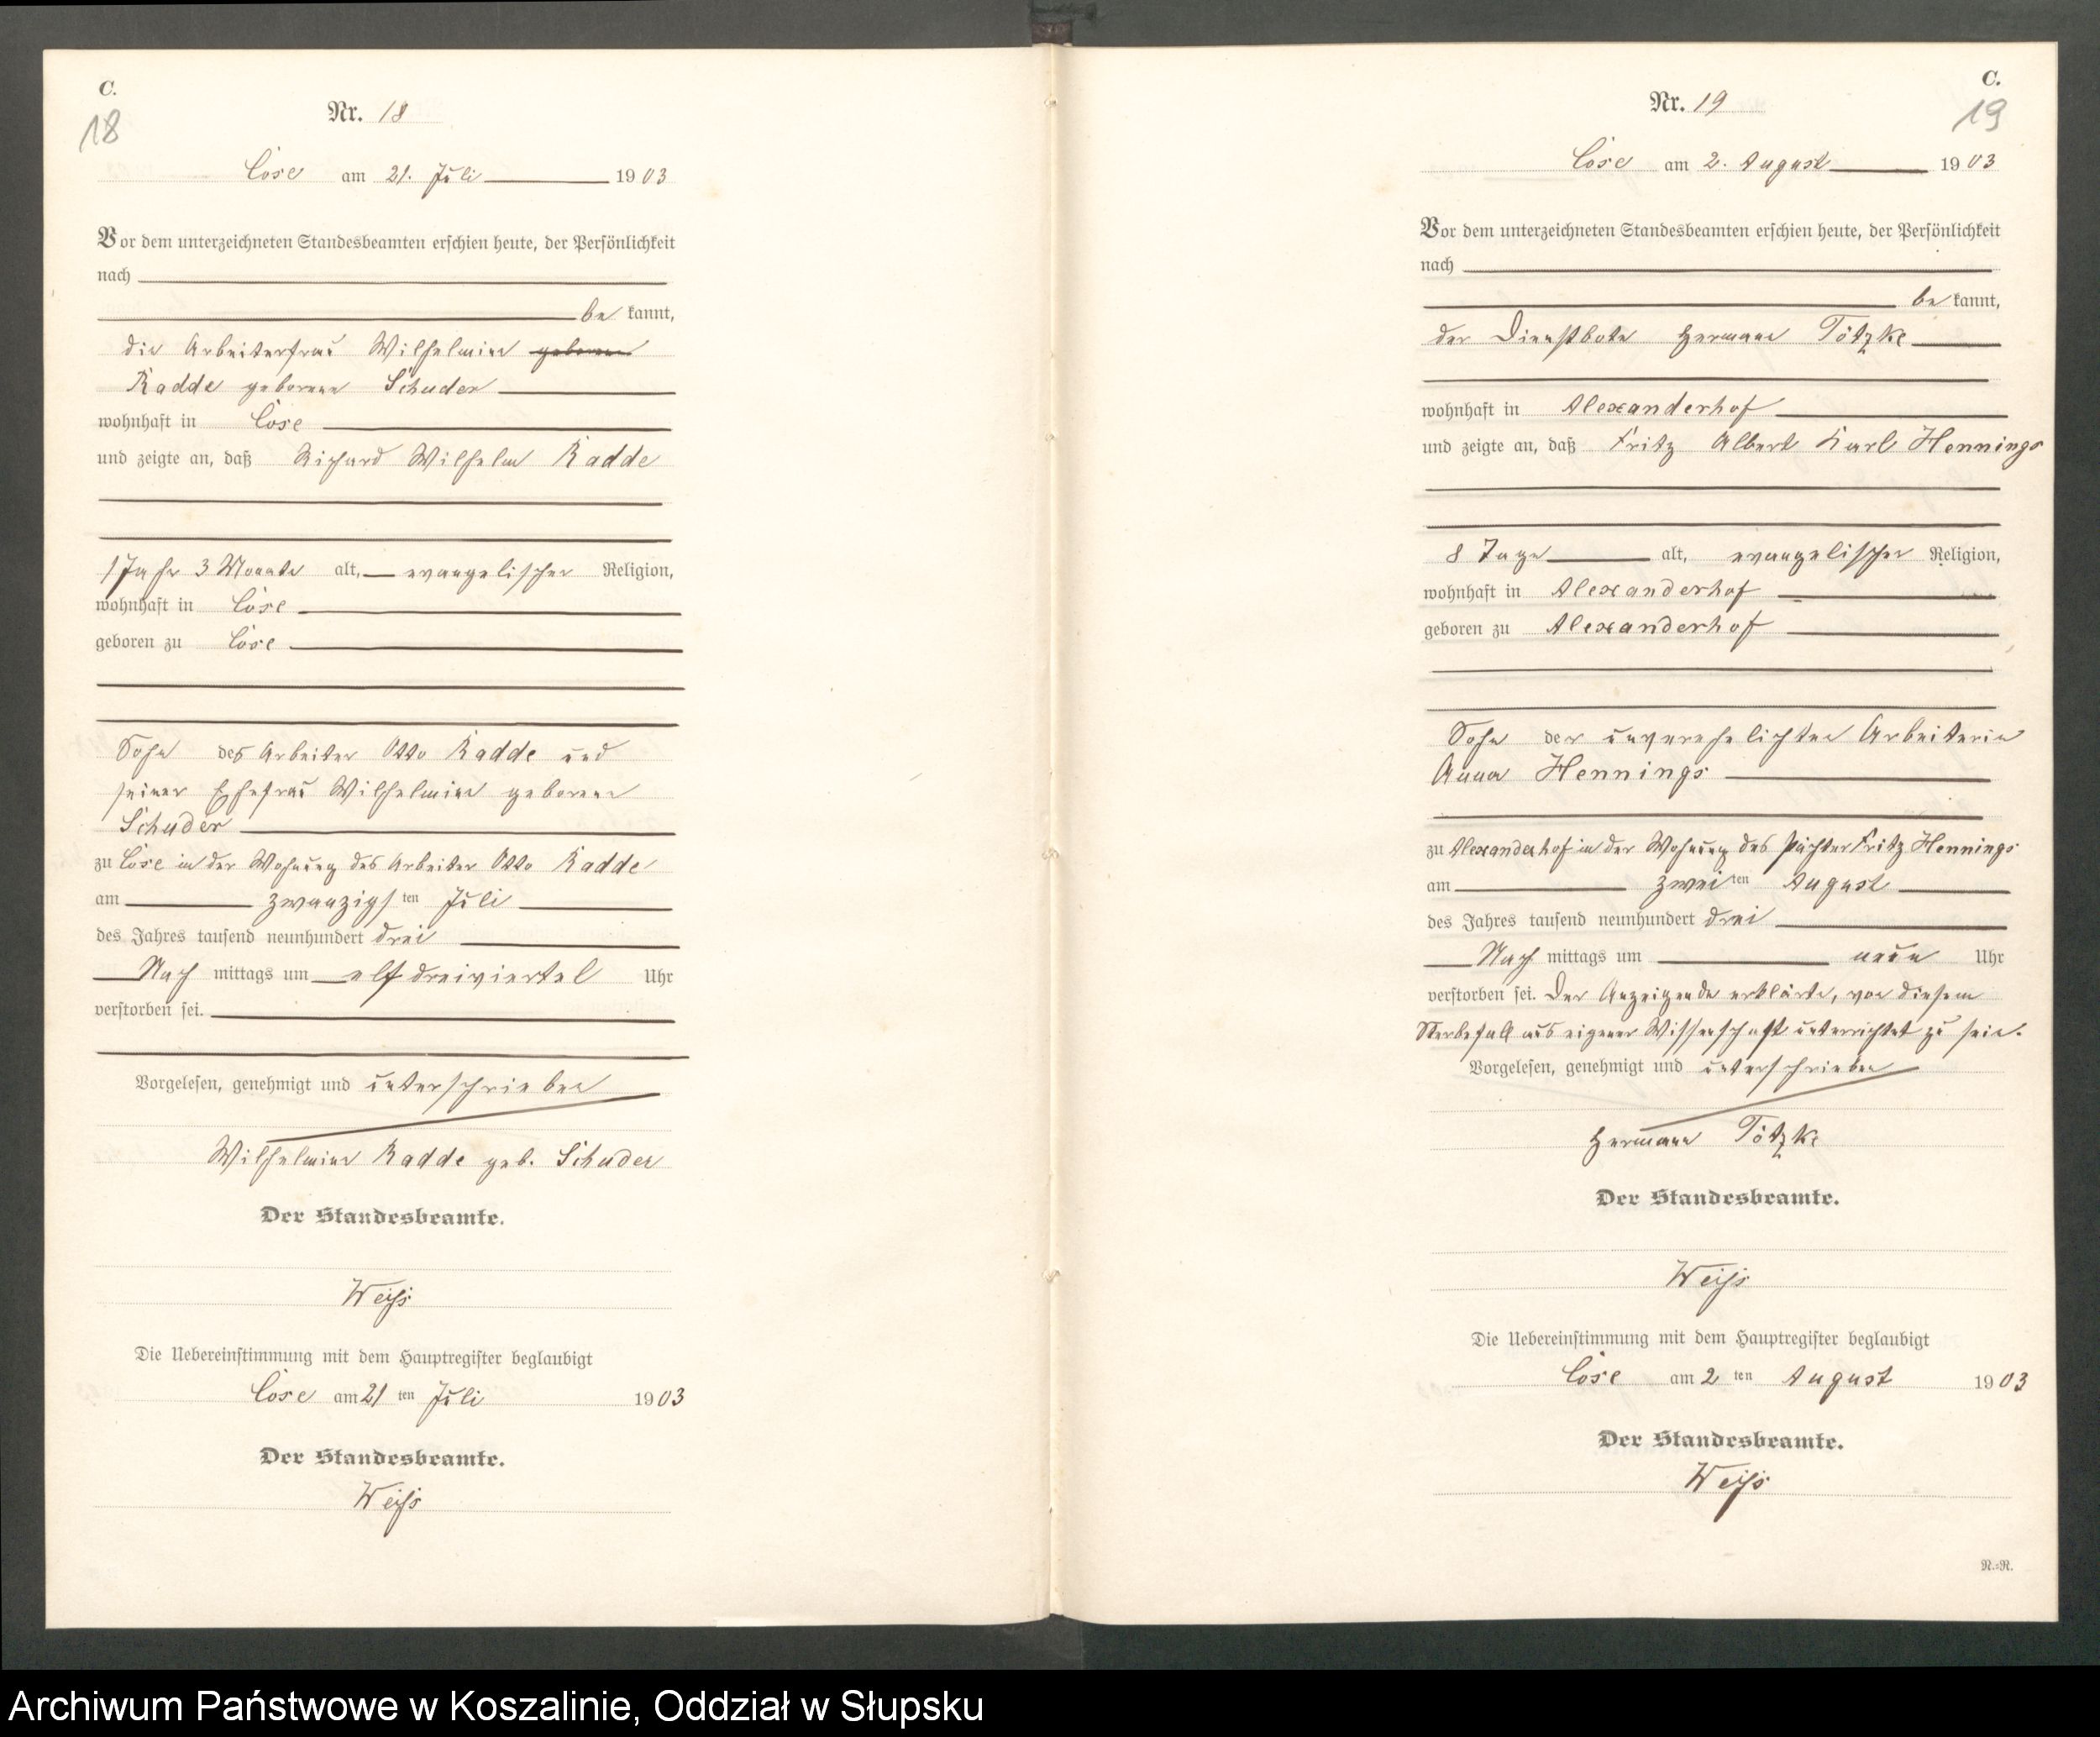 C.
18
Nr. 18
Cose am 21. Juli 1903
Vor dem unterzeichneten Standesbeamten erschien heute, der Persönlichkeit
nach
be kannt,
die Arbeiterfrau Wilhelmine geborene
Radde geborene Schuder
wohnhaft in Cose
und zeigte an, daß Richard Wilhelm Radde
1 Jahr 3 Monate alt, evangelischer Religion,
wohnhaft in Cose
geboren zu Cose
Sohn des Arbeiter Otto Radde und
seiner Ehefrau Wilhelmine geborene
Schuder
zu Cose in der Wohnung des Arbeiter Otto Radde
am zwanzigs ten Juli
des Jahres tausend neunhundert drei
Nach mittags um elf dreiviertel Uhr
verstorben sei.
Vorgelesen, genehmigt und unterschrieben
Wilhelmine Radde geb. Schuder
Der Standesbeamte.
Weiß
Die Uebereinstimmung mit dem Hauptregister beglaubigt
Cose am 21 ten Juli 1903
Der Standesbeamte.
Weiß
C.
19
Nr. 19
Cose am 2. August 1903
Vor dem unterzeichneten Standesbeamten erschien heute, der Persönlichkeit
nach
be kannt,
der Dienstbote Hermann Tötzke
wohnhaft in Alexanderhof
und zeigte an, daß Fritz Albert Karl Hennings
8 Tage alt, evangelischer Religion,
wohnhaft in Alexanderhof
geboren zu Alexanderhof
Sohn der unverehelichten Arbeiterin
Anna Hennings
zu Alexanderhof in der Wohnung des Pächter Fritz Hennings
am zwei ten August
des Jahres tausend neunhundert drei
Nach mittags um neun Uhr
verstorben sei. Der Anzeigende erklärte, von diesem
Sterbefall aus eigener Wissenschaft unterrichtet zu sein.
Vorgelesen, genehmigt und unterschrieben
Hermann Tötzke
Der Standesbeamte.
Weiß
Die Uebereinstimmung mit dem Hauptregister beglaubigt
Cose am 2 ten August 1903
Der Standesbeamte.
Weiß
N.-N.
Archiwum Państwowe w Koszalinie, Oddział w Słupsku